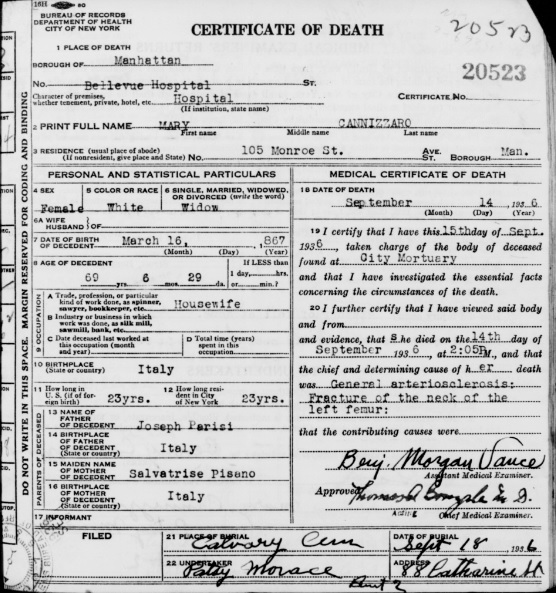 16H 80
BUREAU OF RECORDS
DEPARTMENT OF HEALTH
CITY OF NEW YORK
CERTIFICATE OF DEATH
20523
20523
1 PLACE OF DEATH
BOROUGH OF Manhattan
No. Bellevue Hospital St.
Character of premises,
whether tenement, private, hotel, etc. Hospital
(If institution, state name)
CERTIFICATE No.
2 PRINT FULL NAME MARY CANNIZZARO
First name Middle name Last name
3 RESIDENCE (usual place of abode) 105 Monroe St. AVE. ST. BOROUGH Man.
(If nonresident, give place and State) No.
DO NOT WRITE IN THIS SPACE. MARGIN RESERVED FOR CODING AND BINDING
PERSONAL AND STATISTICAL PARTICULARS
4 SEX Female
5 COLOR OR RACE White
6 SINGLE, MARRIED, WIDOWED,
OR DIVORCED (write the word)
Widow
6A WIFE
HUSBAND } OF
7 DATE OF BIRTH
OF DECEDENT March 16, 1867
(Month) (Day) (Year)
8 AGE OF DECEDENT
69 yrs. 6 mos. 29 da.
If LESS than
1 day, hrs.
or min.
9 OCCUPATION
A Trade, profession, or particular
kind of work done, as spinner,
sawyer, bookkeeper, etc. Housewife
B Industry or business in which
work was done, as silk mill,
sawmill, bank, etc.
C Date deceased last worked at
this occupation (month
and year)
D Total time (years)
spent in this
occupation
10 BIRTHPLACE
(State or country) Italy
11 How long in
U. S. (if of foreign birth) 23yrs.
12 How long resident in City
of New York 23yrs.
PARENTS OF DECEASED
13 NAME OF
FATHER
OF DECEDENT Joseph Parisi
14 BIRTHPLACE
OF FATHER
OF DECEDENT
(State or country) Italy
15 MAIDEN NAME
OF MOTHER
OF DECEDENT Salvatrise Pisano
16 BIRTHPLACE
OF MOTHER
OF DECEDENT
(State or country) Italy
17 INFORMANT
MEDICAL CERTIFICATE OF DEATH
18 DATE OF DEATH
September 14 , 1936
(Month) (Day) (Year)
19 I certify that I have this 15th day of Sept.
1936, taken charge of the body of deceased
found at City Mortuary
and that I have investigated the essential facts
concerning the circumstances of the death.
20 I further certify that I have viewed said body
and from
and evidence, that she died on the 14th day of
September 1936, at 2:05PM, and that
the chief and determining cause of her death
was General arteriosclerosis:
Fracture of the neck of the
left femur:
that the contributing causes were
Benj. Morgan Vance
Assistant Medical Examiner.
Approved
Chief Medical Examiner.
FILED
21 PLACE OF BURIAL Calvary Cem
DATE OF BURIAL Sept 18 1936
22 UNDERTAKER Patsy Morace
ADDRESS 88 Catharine St